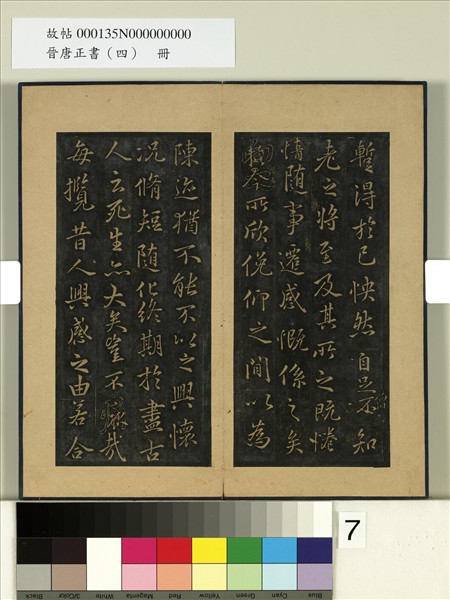 故帖 000135N000000000
晉唐正書（四） 冊
暫得於己怏然自足不知
僧
老之將至及其所之既惓
情隨事遷感慨係之矣
向之所欣俛仰之間以為
陳迹猶不能不以之興懷
況脩短隨化終期於盡古
人云死生亦大矣豈不痛哉
每攬昔人興感之由若合
7
Blue Cyan Green Yellow Red Magenta White 3/Color Black